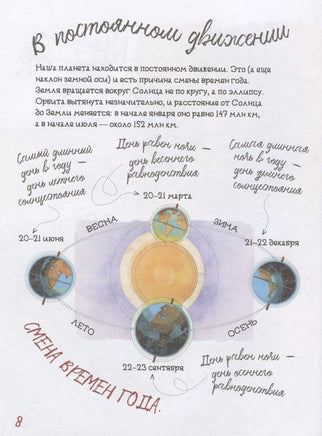 В постоянном движении
Наша планета находится в постоянном движении. Это (а еще
наклон земной оси) и есть причина смены времен года.
Земля вращается вокруг Солнца не по кругу, а по эллипсу.
Орбита вытянута незначительно, и расстояние от Солнца
до Земли меняется: в начале января оно равно 147 млн км,
а в начале июля — около 152 млн км.
Самый длинный
день в году —
день летнего
солнцестояния
День равен ночи —
день весеннего
равноденствия
Самая длинная
ночь в году —
день зимнего
солнцестояния
20–21 марта
ВЕСНА
ЗИМА
20–21 июня
21–22 декабря
ЛЕТО
ОСЕНЬ
СМЕНА ВРЕМЕН ГОДА.
22–23 сентября
День равен ночи —
день осеннего
равноденствия
8